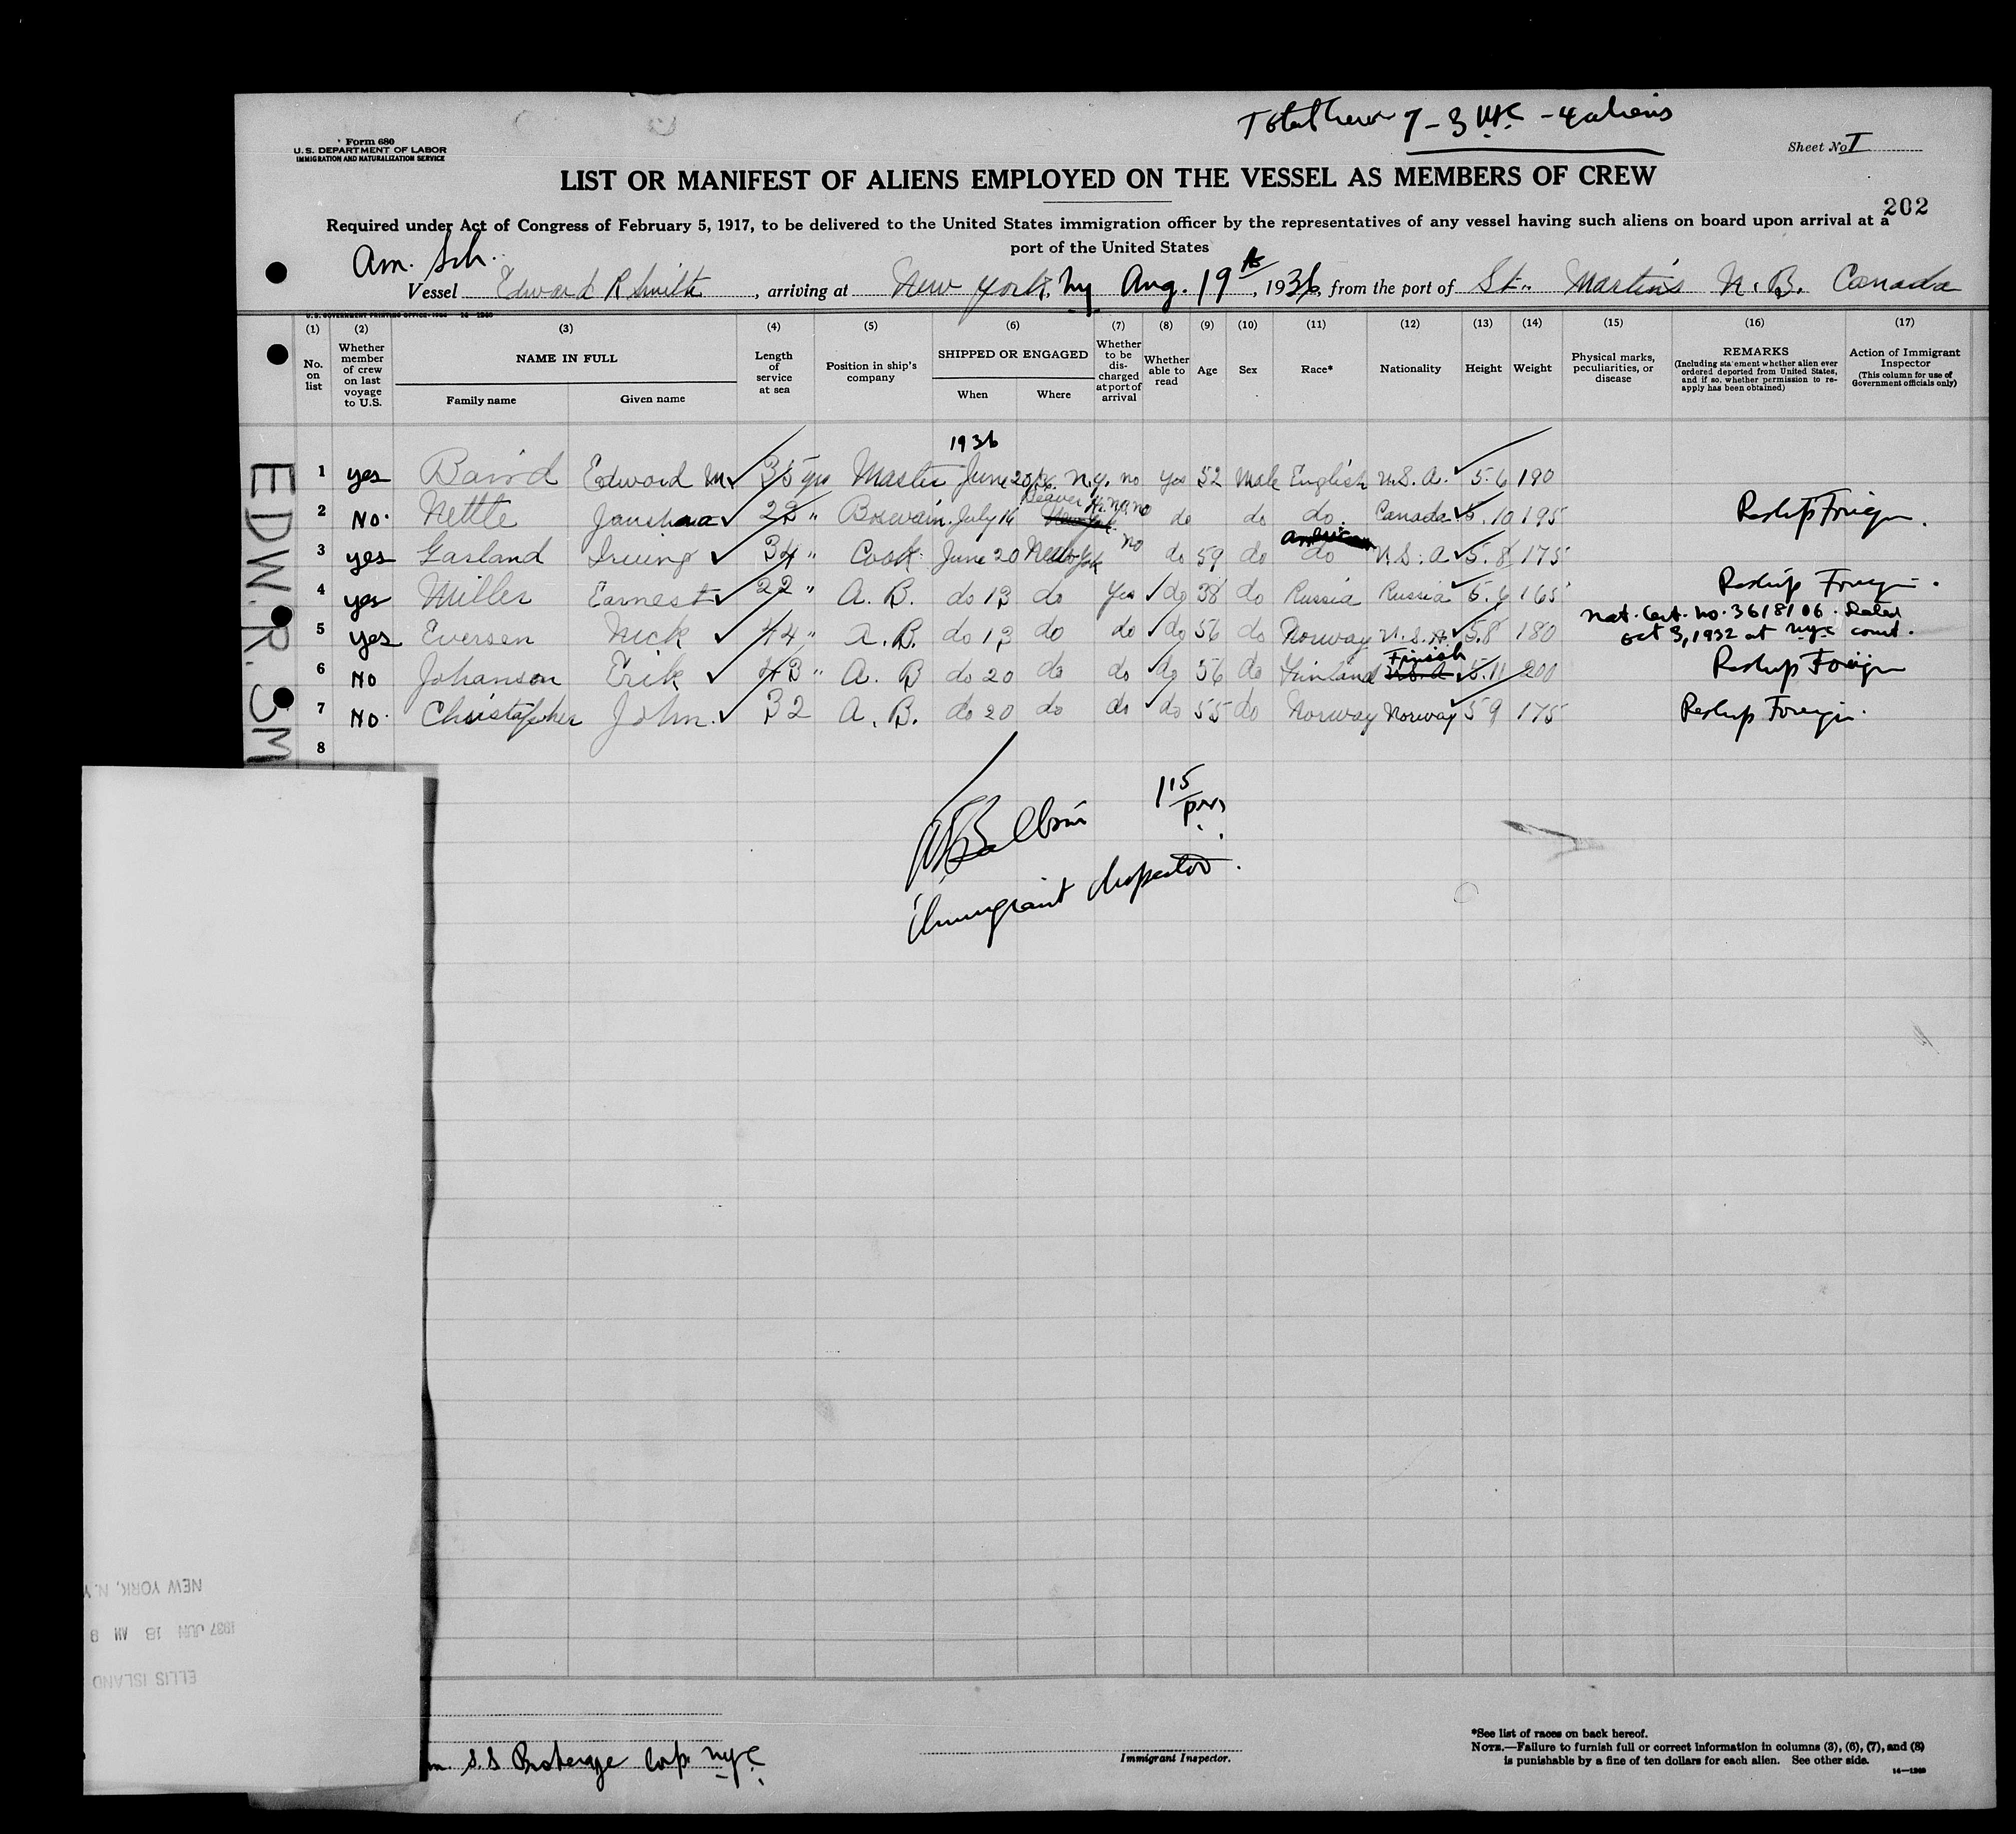 Total Crew 7 - 3 USC - 4 aliens
Form 680
U.S. DEPARTMENT OF LABOR
IMMIGRATION AND NATURALIZATION SERVICE
Sheet No. I
LIST OR MANIFEST OF ALIENS EMPLOYED ON THE VESSEL AS MEMBERS OF CREW
202
Required under Act of Congress of February 5, 1917, to be delivered to the United States immigration officer by the representatives of any vessel having such aliens on board upon arrival at a
port of the United States
Am. Sch.
Vessel Edward R Smith, arriving at New York, Ny Aug. 19th, 1936, from the port of St. Martins N.B. Canada
U.S. GOVERNMENT PRINTING OFFICE: 1934 14-1240
(1) (2) (3) (4) (5) (6) (7) (8) (9) (10) (11) (12) (13) (14) (15) (16) (17)
No. on list
Whether member of crew on last voyage to U.S.
NAME IN FULL
Family name Given name
Length of service at sea
Position in ship's company
SHIPPED OR ENGAGED
When Where
Whether to be discharged at port of arrival
Whether able to read
Age
Sex
Race*
Nationality
Height
Weight
Physical marks, peculiarities, or disease
REMARKS
(Including statement whether alien ever ordered deported from United States, and if so, whether permission to reapply has been obtained)
Action of Immigrant Inspector
(This column for use of Government officials only)
1936
1 yes Baird Edward M 35 yrs Master June 20/36 N.y. no yes 52 Male English U.S.A. 5.6 190
2 No. Nettle 22 " July 14 Beaver no no do do do Canada 5.10 195 Reship Foreign.
3 yes Garland Irving 34 " Cook June 20 New York no do 59 do do U.S.A 5.8 175
4 yes Miller Earnest 22 " A.B. do 13 do Yes do 38 do Russia Russia 5.6 165 Reship Foreign.
5 yes Eversen Nick 44 " A.B. do 13 do do do 56 do Norway U.S.A 5.8 180 Nat. Cert. No. 3618106. Dated
Oct 3, 1932 at NYC court.
6 No Johanson Erik 43 " A.B do 20 do do do 56 do Finland Finish 5.11 200 Reship Foreign
7 No. Christopher John. 32 A.B. do 20 do do do 55 do Norway Norway 5 9 175 Reship Foreign.
8
EDW. R. SM
1 15 pm
Immigrant Inspector.
NEW YORK, N.Y
1937 JUN 18 AM 9
ELLIS ISLAND
S.S Brokerage Corp. NYC
Immigrant Inspector.
*See list of races on back hereof.
NOTE.—Failure to furnish full or correct information in columns (3), (6), (7), and (8)
is punishable by a fine of ten dollars for each alien. See other side.
14—1240